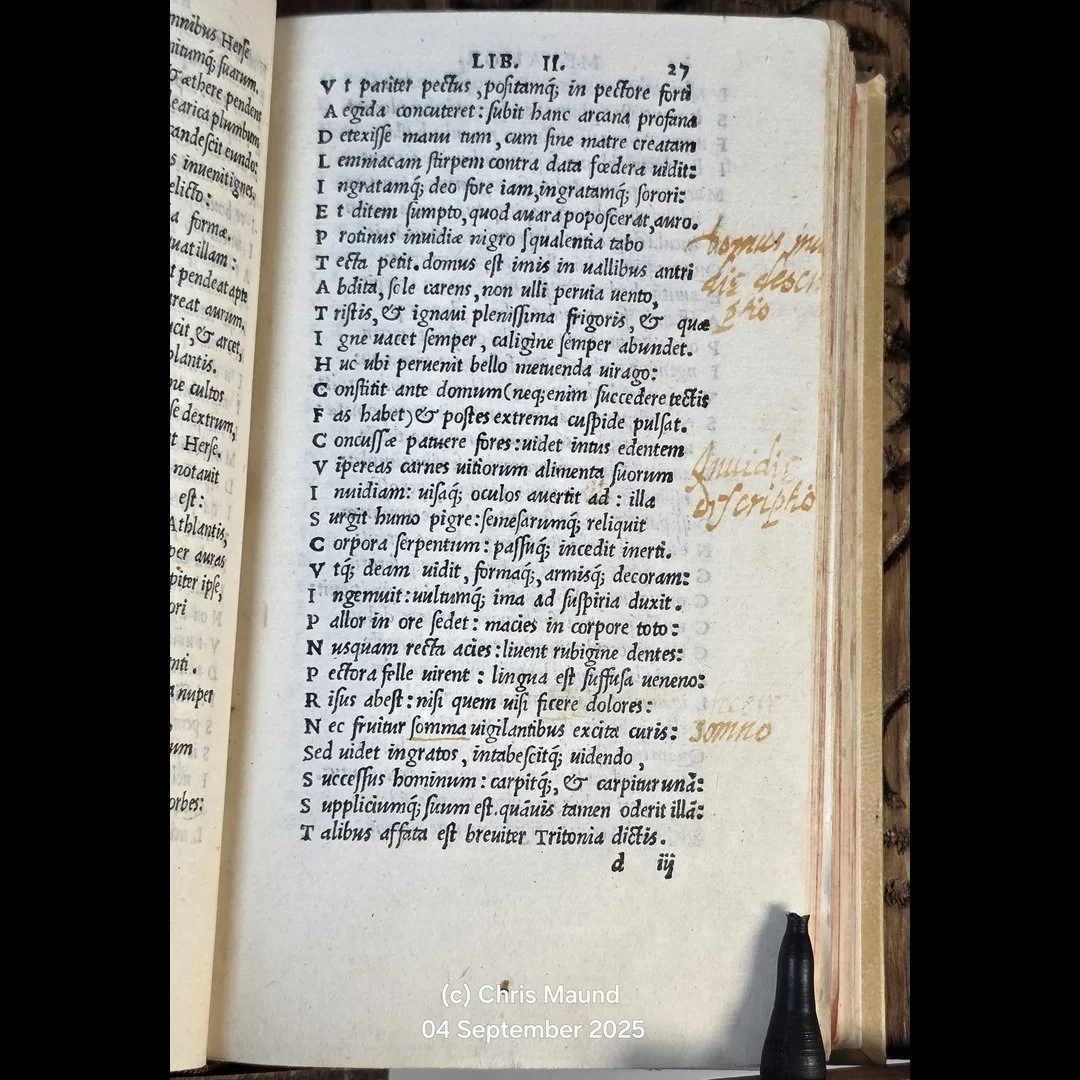 mnibus Herse
nitumq; suarum.
& æthere pendens
earica plumbum
andescit eundo:
s inuenit ignes,
elicto:
a formæ.
uat illam:
t pendeat apte
areat aurum.
ucit, & arcet,
plantis.
ne cultos
se dextrum,
t Herse.
notauit
est:
Athlantis,
per auras
piter ipse,
ori
nti.
a nuper
um
orbes:
LIB. II. 27
V t pariter pectus, positamq; in pectore forti
A egida concuteret: subit hanc arcana profana
D etexisse manu tum, cum sine matre creatam
L emniacam stirpem contra data fœdera uidit:
I ngratamq; deo fore iam, ingratamq; sorori:
E t ditem sumpto, quod auara poposcerat, auro.
P rotinus inuidiæ nigro squalentia tabo
T ecta petit. domus est imis in uallibus antri
A bdita, sole carens, non ulli peruia uento,
T ristis, & ignaui plenissima frigoris, & quæ
I gne uacet semper, caligine semper abundet.
H uc ubi peruenit bello metuenda uirago:
C onstitit ante domum (neq; enim succedere tectis
F as habet) & postes extrema cuspide pulsat.
C oncussæ patuere fores: uidet intus edentem
V ipereas carnes uitiorum alimenta suorum
I nuidiam: uisaq; oculos auertit ad: illa
S urgit humo pigre: semesarumq; reliquit
C orpora serpentum: passuq; incedit inerti.
V tq; deam uidit, formaq;, armisq; decoram:
I ngemuit: uultumq; ima ad suspiria duxit.
P allor in ore sedet: macies in corpore toto:
N usquam recta acies: liuent rubigine dentes:
P ectora felle uirent: lingua est suffusa ueneno:
R isus abest: nisi quem uisi ficere dolores:
N ec fruitur somma uigilantibus excita curis:
Sed uidet ingratos, intabescitq; uidendo,
S uccessus hominum: carpitq;, & carpitur unà:
S uppliciumq; suum est. quāuis tamen oderit illā:
T alibus affata est breuiter Tritonia dictis.
d iij
Domus inui
dię descri
ptio
Inuidię
discriptio
somno
(c) Chris Maund
04 September 2025